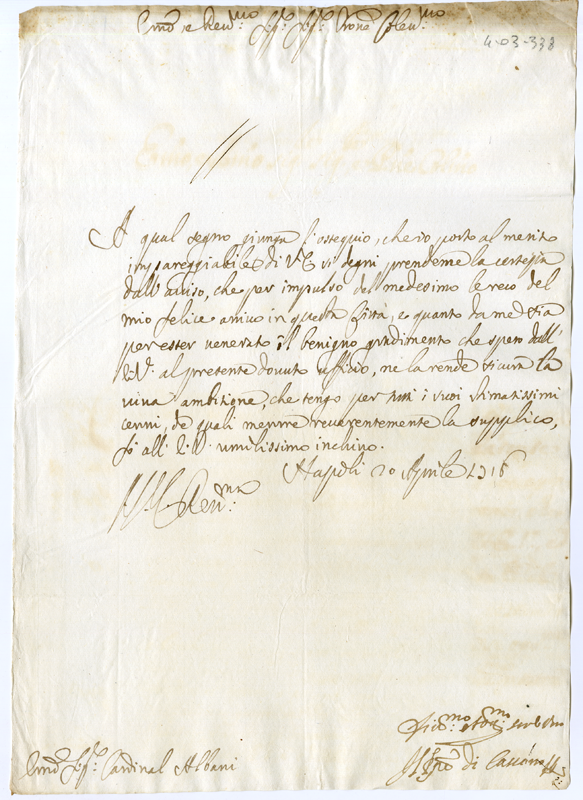 Em̃o, e Reu.mo Sig.r Sig.r Prone Colen.mo
4-03-338
A qual segno giunga l'ossequio, che io porto al merito
impareggiabile di V.E. si degni prenderne la certezza
dall'auuiso, che per impulso del medesimo le reco del
mio felice arriuo in questa Città, e quanto da me sia
per esser venerato il benigno gradimento che spero dall'
E.V. al presente douuto ufficio, ne la rende sicura la
viua ambitione, che tengo per tutti i suoi stimatissimi
cenni, de quali mentre reuerentemente la supplico,
fò all'E.V. umilissimo inchino.
Napoli 20 Aprile 1716
Reu.ma
Em̃o Sig.r Cardinal Albani
di